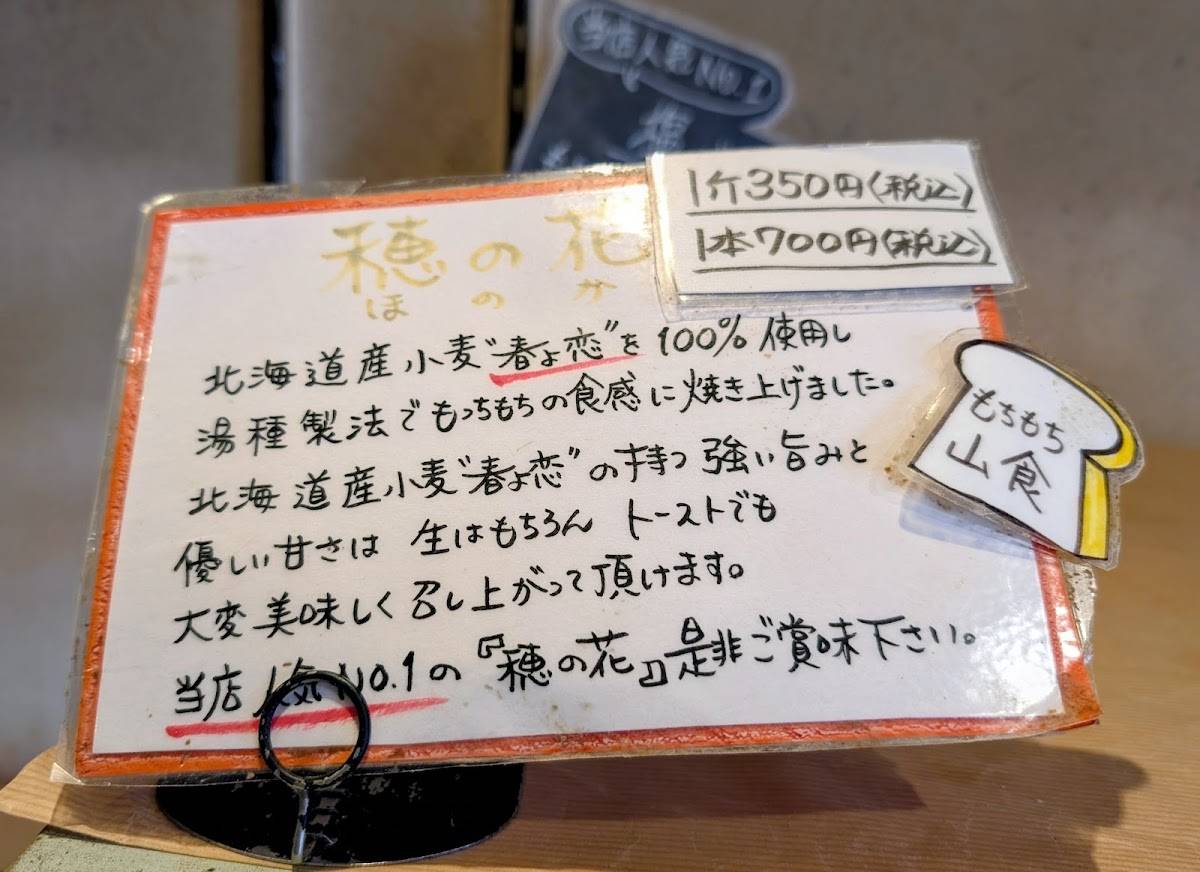 当店人気No.1
塩
1斤350円(税込)
1本700円(税込)
穂の花
ほのか
北海道産小麦"春よ恋"を100%使用し
湯種製法でもっちもちの食感に焼き上げました。
北海道産小麦"春よ恋"の持つ強い旨みと
優しい甘さは 生はもちろん トーストでも
大変美味しく召し上がって頂けます。
当店人気No.1の『穂の花』是非ご賞味下さい。
もちもち
山食